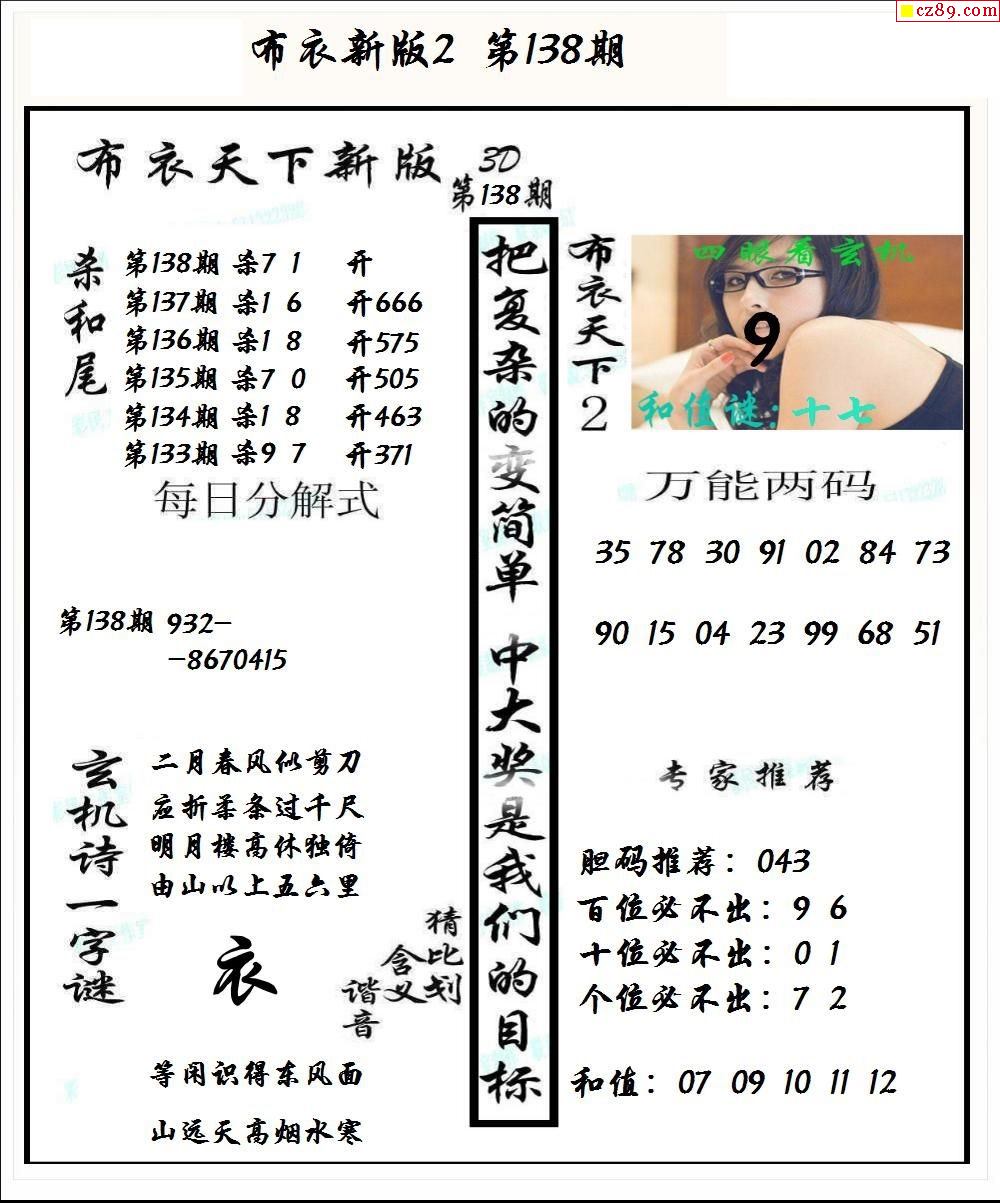 cz89.com
布衣新版2 第138期
布衣天下新版 3D
第138期
杀和尾
第138期 杀7 1 开
第137期 杀1 6 开666
第136期 杀1 8 开575
第135期 杀7 0 开505
第134期 杀1 8 开463
第133期 杀9 7 开371
每日分解式
第138期 932-
-8670415
玄机诗一字谜
二月春风似剪刀
应折柔条过千尺
明月楼高休独倚
由山以上五六里
衣
猜比划
含义
谐音
等闲识得东风面
山远天高烟水寒
把复杂的变简单 中大奖是我们的目标
布衣天下2
四眼看玄机
9
和值谜:十七
万能两码
35 78 30 91 02 84 73
90 15 04 23 99 68 51
专家推荐
胆码推荐：043
百位必不出：9 6
十位必不出：0 1
个位必不出：7 2
和值：07 09 10 11 12